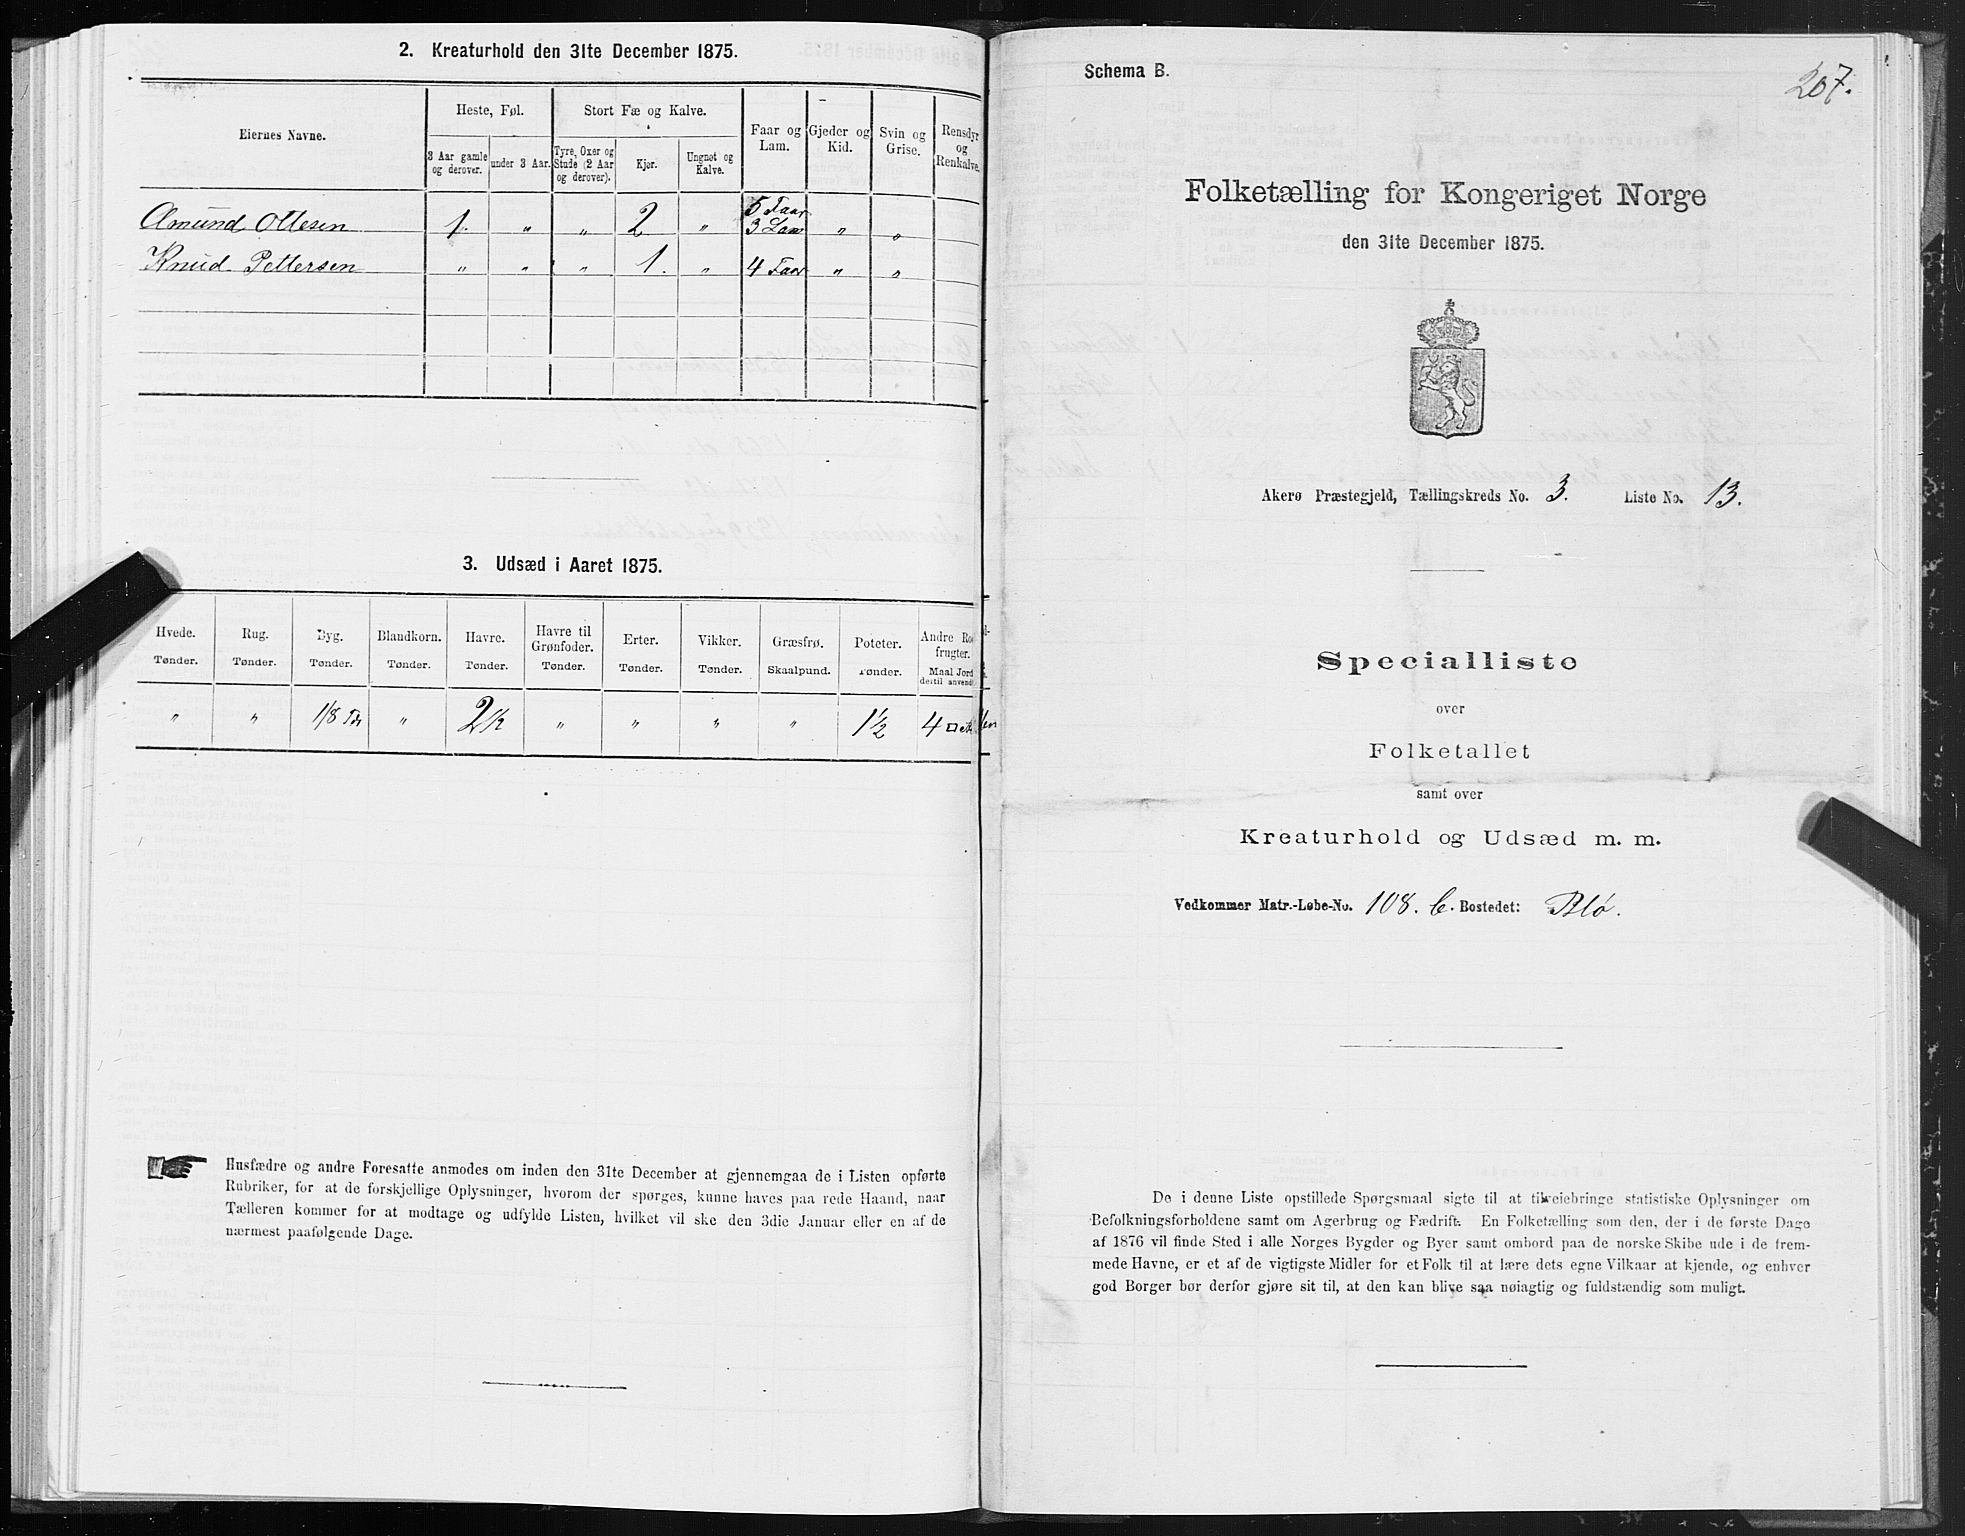 2. Kreaturhold den 31te December 1875.
Eiernes Navne.
Heste, Føl.
Stort Fæ og Kalve.
Faar og Lam.
Gjeder og Kid.
Svin og Grise.
Rensdyr og Renkalve.
3 Aar gamle og derover.
under 3 Aar.
Tyre, Oxer og Stude (2 Aar og derover).
Kjør.
Ungnøt og Kalve.
Amund Ottesen 1. " " 2 " 5 Faar 3 Lam " "
Knud Pettersen " " " 1. " 4 Faar " "
3. Udsæd i Aaret 1875.
Hvede. Rug. Byg. Blandkorn. Havre. Havre til Grønfoder. Erter. Vikker. Græsfrø. Poteter. Andre Ro- frugter.
Tønder. Tønder. Tønder. Tønder. Tønder. Tønder. Tønder. Tønder. Skaalpund. Tønder. Maal Jord dertil anvendt
" " 1/8 Tdr " 2½ " " " " 1½ 4
Husfædre og andre Foresatte anmodes om inden den 31te December at gjennemgaa de i Listen opførte
Rubriker, for at de forskjellige Oplysninger, hvorom der spørges, kunne haves paa rede Haand, naar
Tælleren kommer for at modtage og udfylde Listen, hvilket vil ske den 3die Januar eller en af de
nærmest paafølgende Dage.
Schema B.
207.
Folketælling for Kongeriget Norge
den 31te December 1875.
Akerø Præstegjeld, Tællingskreds No. 3. Liste No. 13.
Specialliste
over
Folketallet
samt over
Kreaturhold og Udsæd m. m.
Vedkommer Matr.-Løbe-No. 108. C. Bostedet: Blø.
De i denne Liste opstillede Spørgsmaal sigte til at tilveiebringe statistiske Oplysninger om
Befolkningsforholdene samt om Agerbrug og Fædrift. En Folketælling som den, der i de første Dage
af 1876 vil finde Sted i alle Norges Bygder og Byer samt ombord paa de norske Skibe ude i de frem-
mede Havne, er et af de vigtigste Midler for et Folk til at lære dets egne Vilkaar at kjende, og enhver
god Borger bør derfor gjøre sit til, at den kan blive saa nøiagtig og fuldstændig som muligt.